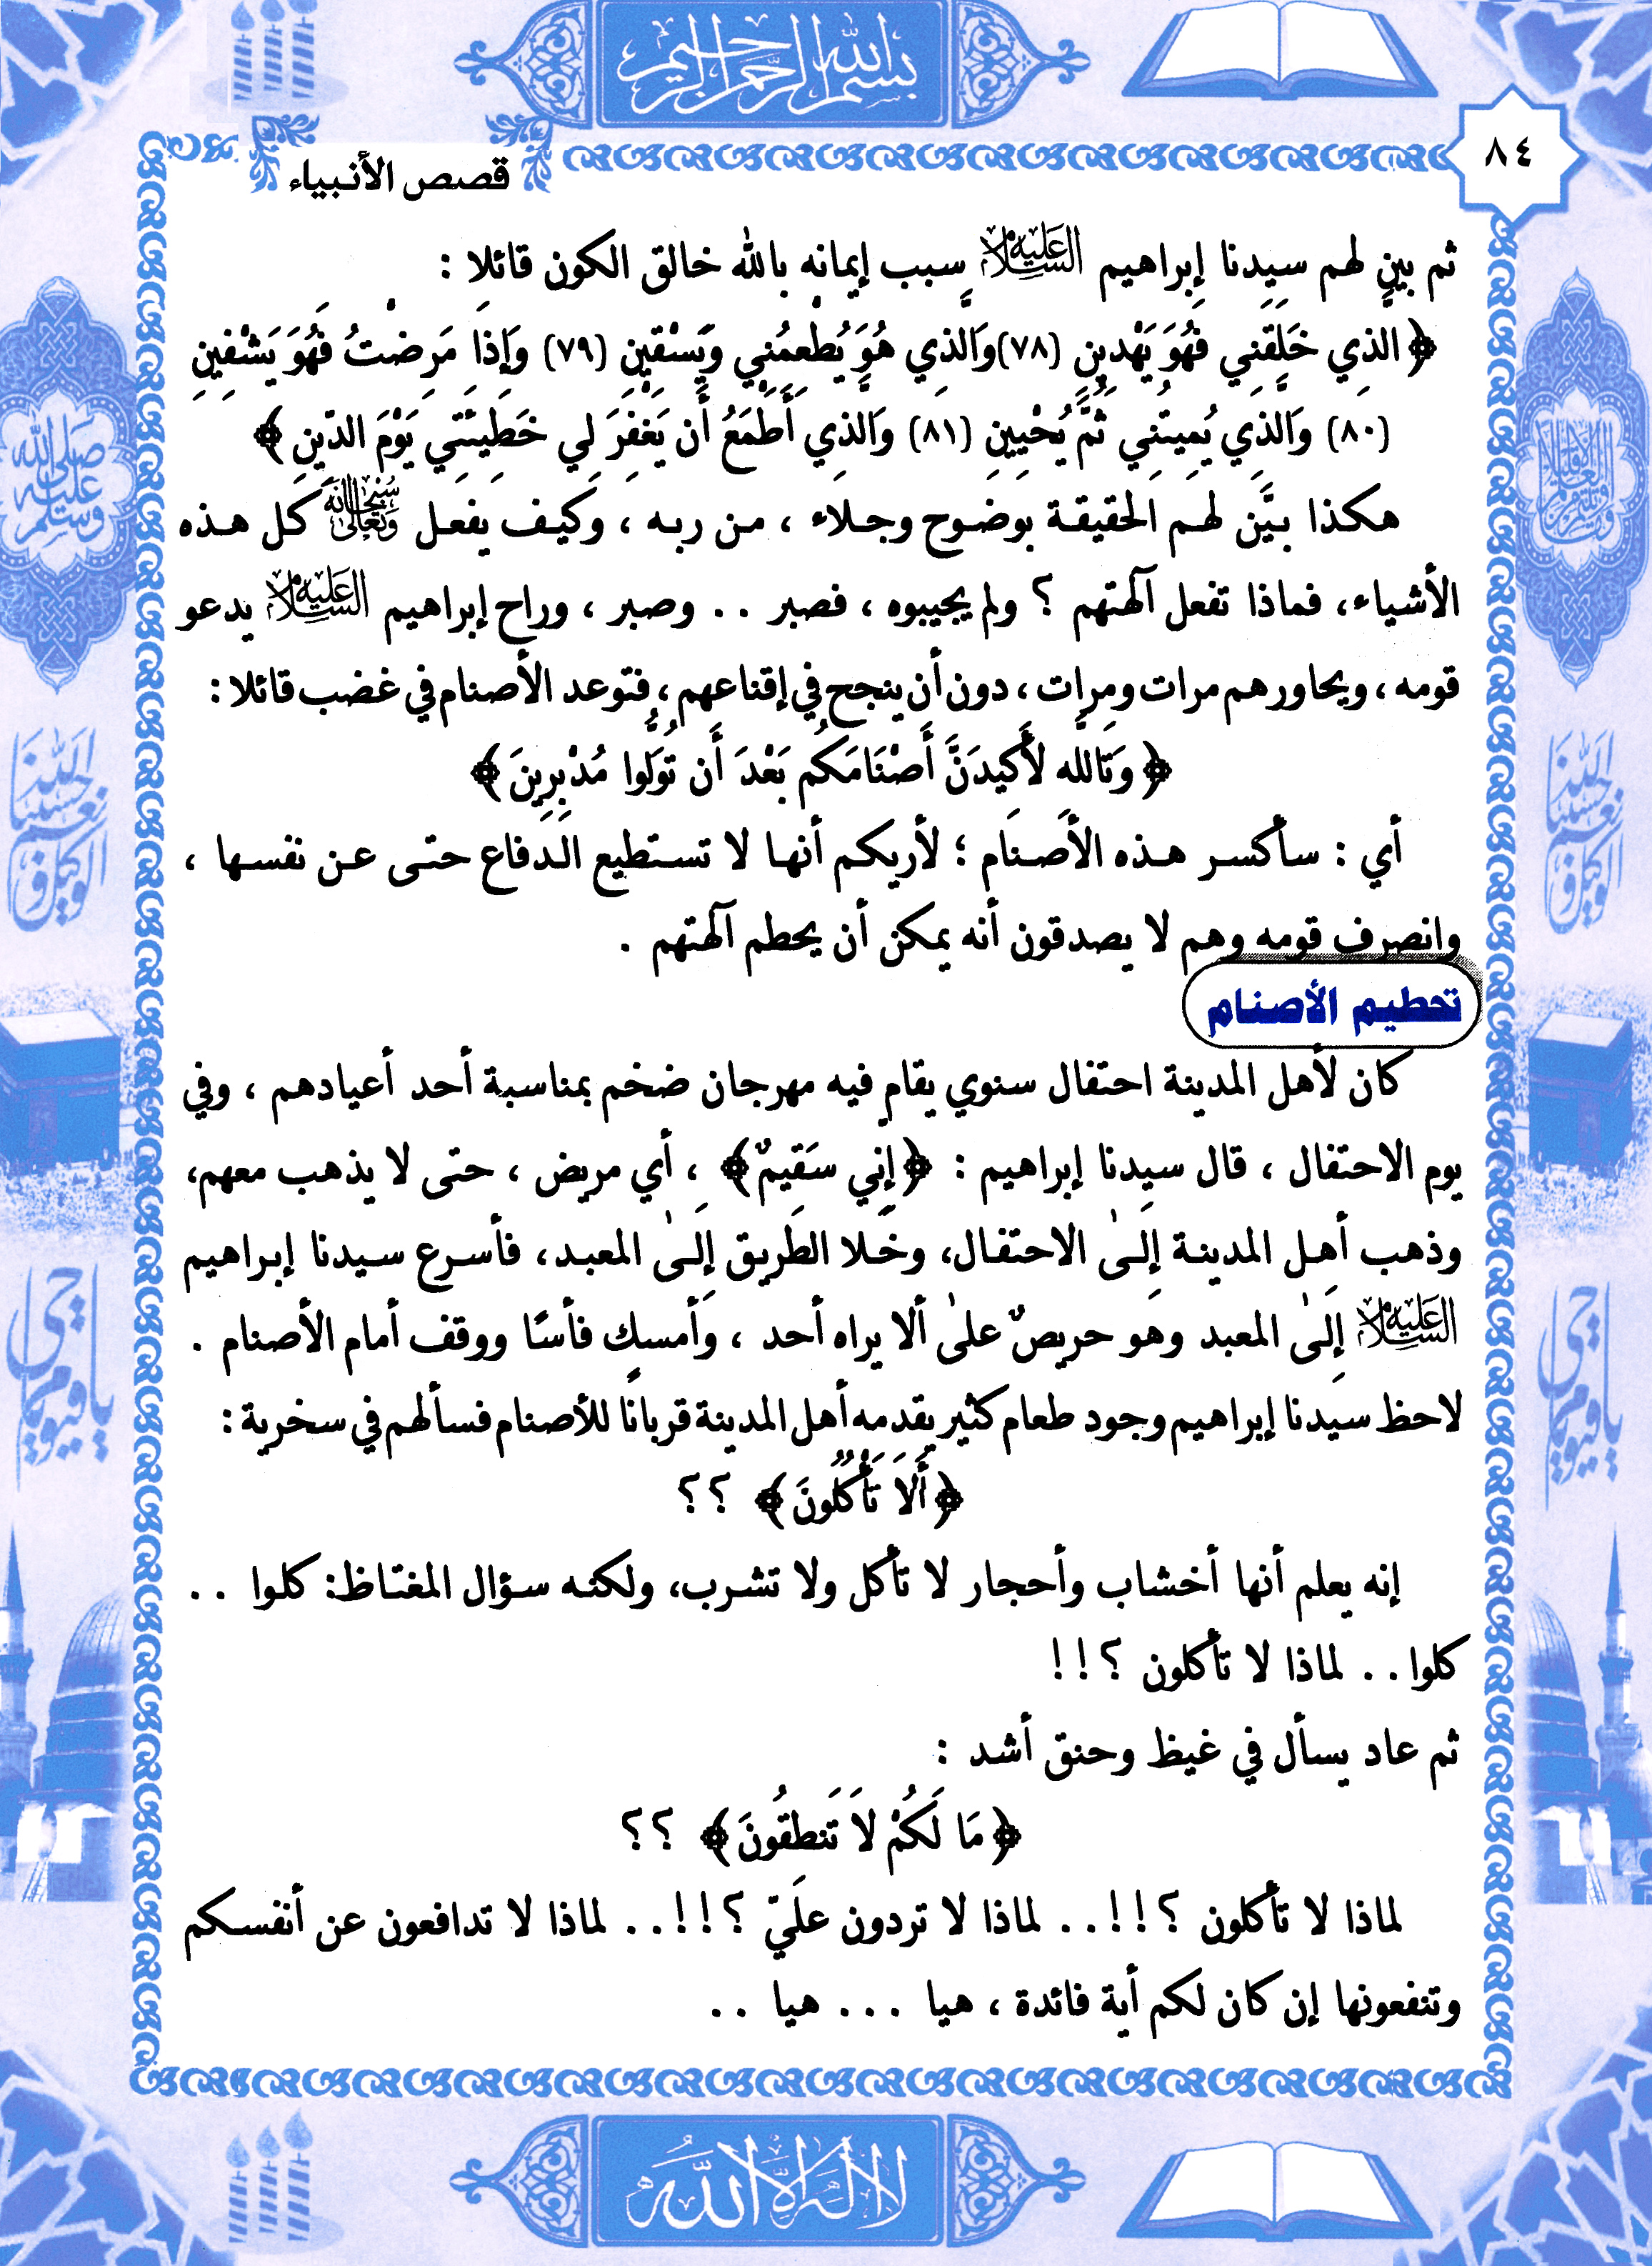 بسم الله الرحمن الرحيم
٨٤
قصص الأنبياء
ثم بين لهم سيدنا إبراهيم عليه السلام سبب إيمانه بالله خالق الكون قائلا :
﴿ الَّذِي خَلَقَنِي فَهُوَ يَهْدِينِ (٧٨) وَالَّذِي هُوَ يُطْعِمُنِي وَيَسْقِينِ (٧٩) وَإِذَا مَرِضْتُ فَهُوَ يَشْفِينِ
(٨٠) وَالَّذِي يُمِيتُنِي ثُمَّ يُحْيِينِ (٨١) وَالَّذِي أَطْمَعُ أَن يَغْفِرَ لِي خَطِيئَتِي يَوْمَ الدِّينِ ﴾
هكذا بيَّن لهم الحقيقة بوضوح وجلاء ، من ربه ، وكيف يفعل سبحانه وتعالى كل هذه
الأشياء، فماذا تفعل آلهتهم ؟ ولم يجيبوه ، فصبر .. وصبر ، وراح إبراهيم عليه السلام يدعو
قومه ، ويحاورهم مرات ومرات ، دون أن ينجح في إقناعهم ، فتوعد الأصنام في غضب قائلا :
﴿ وَتَاللَّهِ لَأَكِيدَنَّ أَصْنَامَكُم بَعْدَ أَن تُوَلُّوا مُدْبِرِينَ ﴾
أي : سأكسر هذه الأصنام ؛ لأريكم أنها لا تستطيع الدفاع حتى عن نفسها ،
وانصرف قومه وهم لا يصدقون أنه يمكن أن يحطم آلهتهم .
تحطيم الأصنام
كان لأهل المدينة احتفال سنوي يقام فيه مهرجان ضخم بمناسبة أحد أعيادهم ، وفي
يوم الاحتفال ، قال سيدنا إبراهيم : ﴿إِنِّي سَقِيمٌ﴾ ، أي مريض ، حتى لا يذهب معهم،
وذهب أهل المدينة إلىٰ الاحتفال، وخلا الطريق إلىٰ المعبد، فأسرع سيدنا إبراهيم
عليه السلام إلىٰ المعبد وهو حريصٌ علىٰ ألا يراه أحد ، وأمسك فأسًا ووقف أمام الأصنام .
لاحظ سيدنا إبراهيم وجود طعام كثير يقدمه أهل المدينة قربانًا للأصنام فسألهم في سخرية :
﴿أَلَا تَأْكُلُونَ﴾ ؟؟
إنه يعلم أنها أخشاب وأحجار لا تأكل ولا تشرب، ولكنه سؤال المغتاظ: كلوا ..
كلوا .. لماذا لا تأكلون ؟!!
ثم عاد يسأل في غيظ وحنق أشد :
﴿مَا لَكُمْ لَا تَنطِقُونَ﴾ ؟؟
لماذا لا تأكلون ؟!!.. لماذا لا تردون عليّ ؟!!.. لماذا لا تدافعون عن أنفسكم
وتنفعونها إن كان لكم أية فائدة ، هيا ... هيا ..
صلى الله عليه وسلم
حسبنا الله ونعم الوكيل
حسبنا الله ونعم الوكيل
يا حي يا قيوم
يا حي يا قيوم
لا إله إلا الله